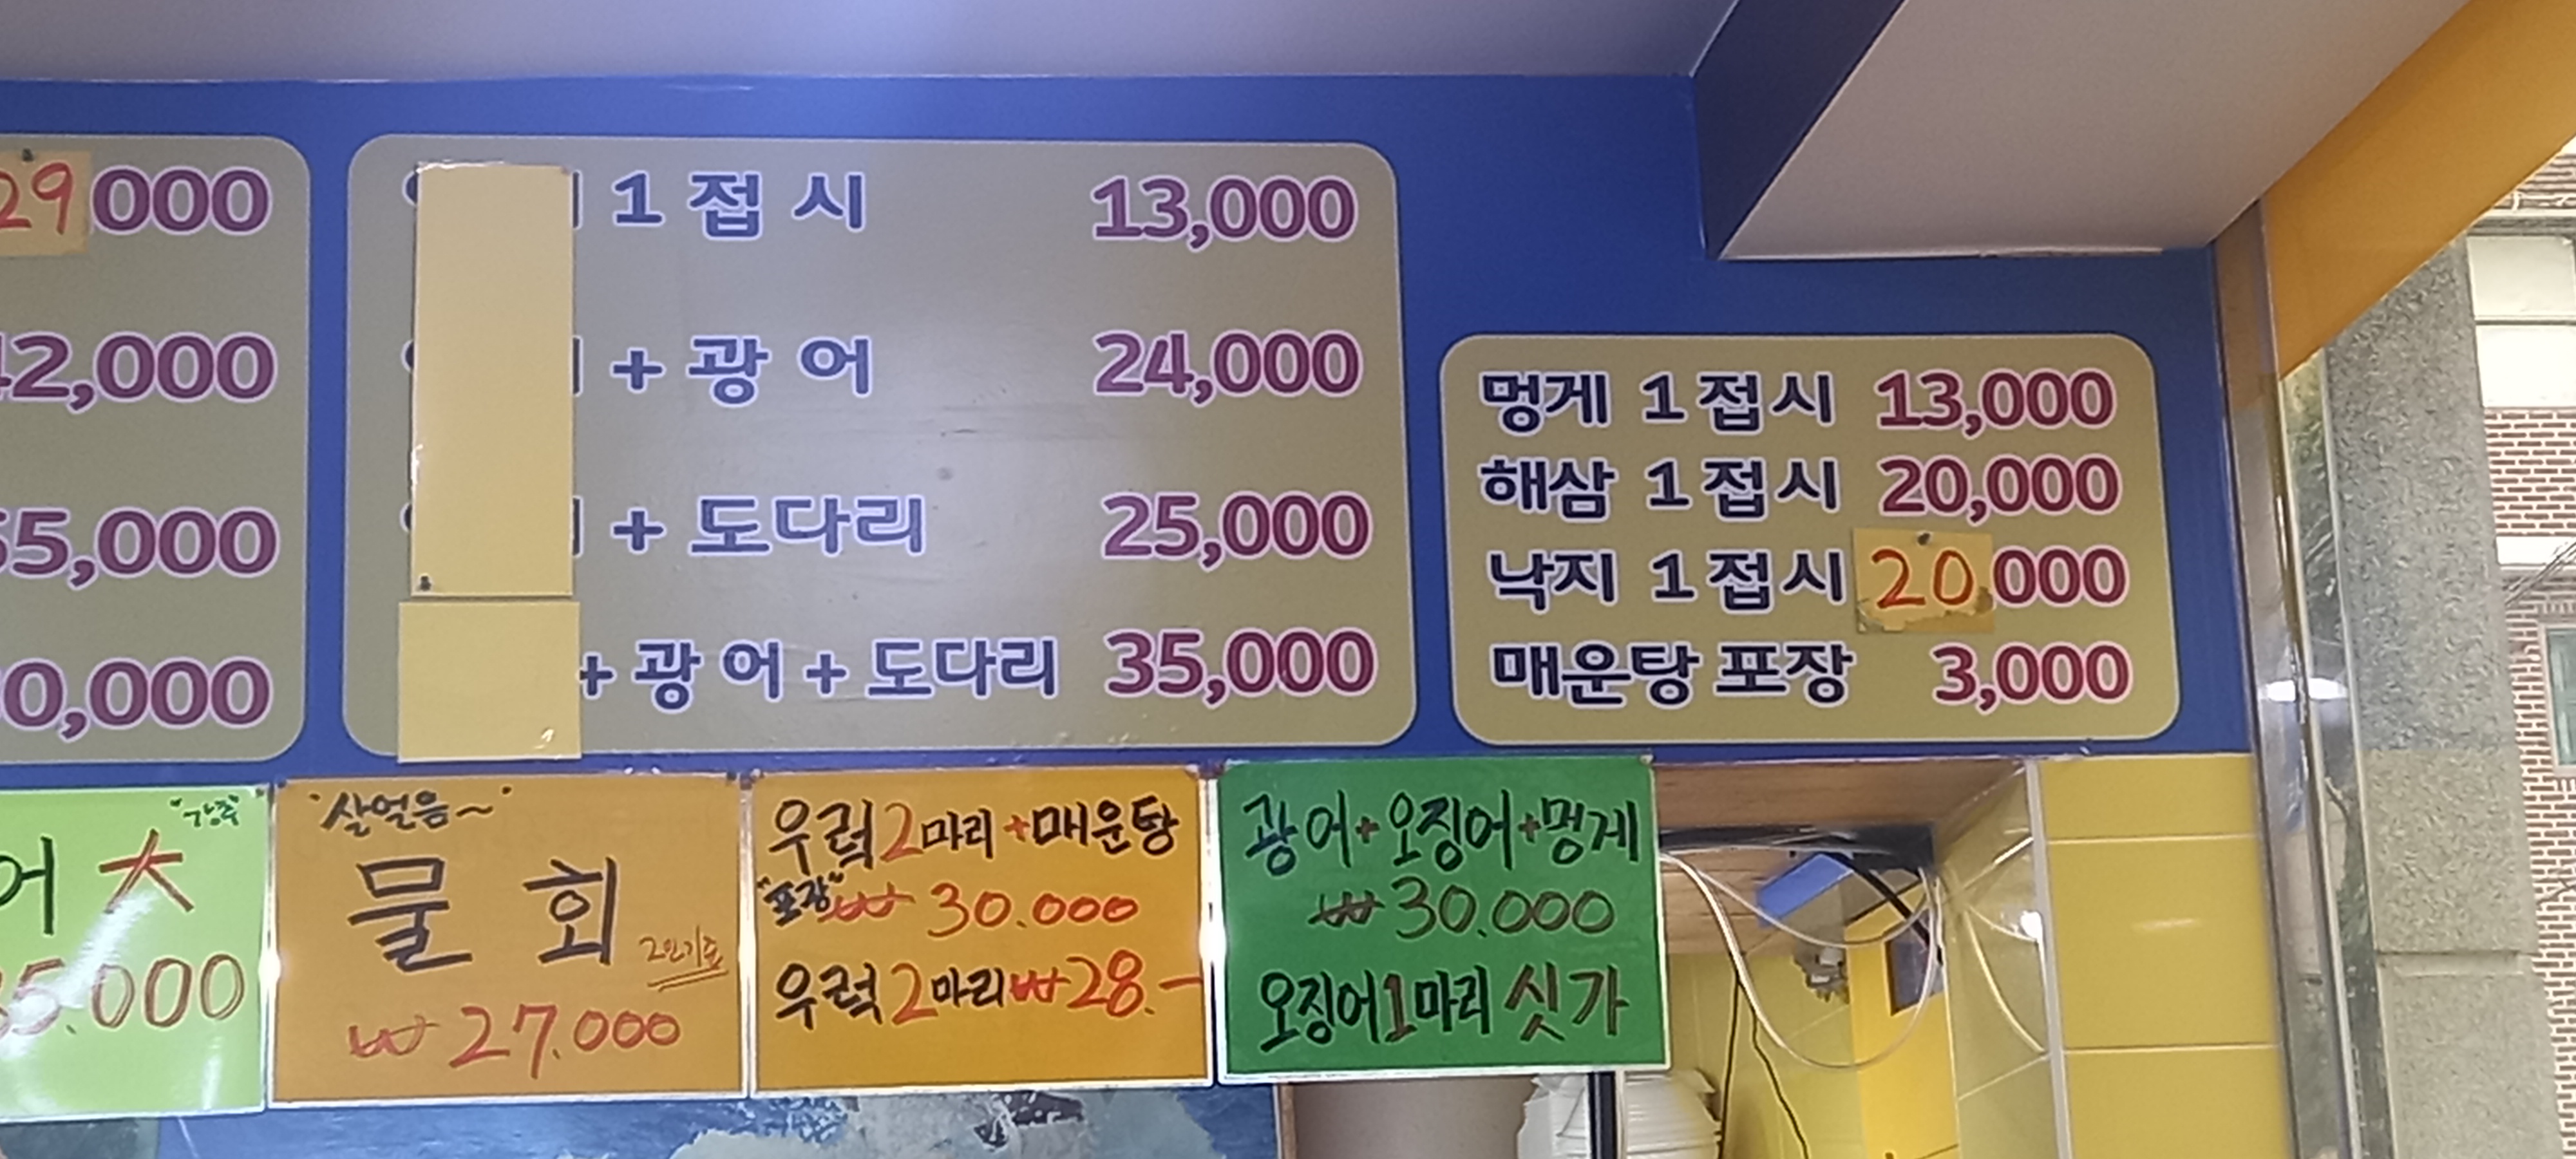 29,000
42,000
55,000
0,000
1 접시 13,000
+ 광어 24,000
+ 도다리 25,000
+ 광어 + 도다리 35,000
멍게 1접시 13,000
해삼 1접시 20,000
낙지 1접시 20,000
매운탕 포장 3,000
"강추"
어 大
35.000
"살얼음~"
물회
2인기준
₩ 27.000
우럭2마리+매운탕
"포장" ₩ 30.000
우럭2마리₩28.-
광어+오징어+멍게
₩30.000
오징어1마리 싯가